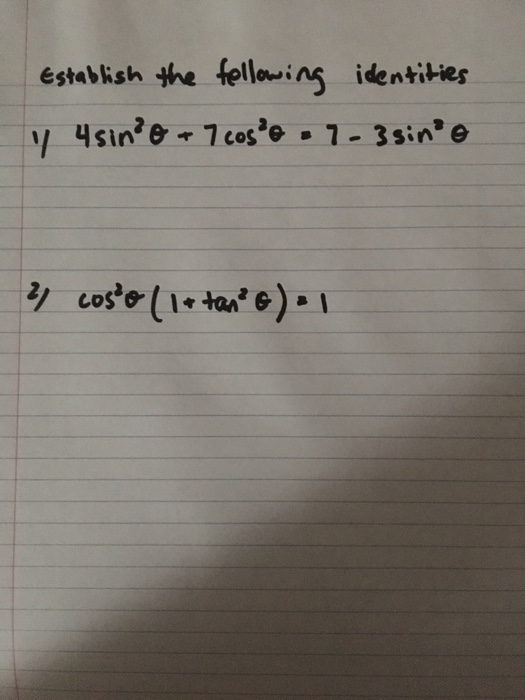 Establish the following identities
1) 4sin²θ + 7cos²θ = 7 - 3sin²θ
2) cos²θ (1 + tan²θ) = 1